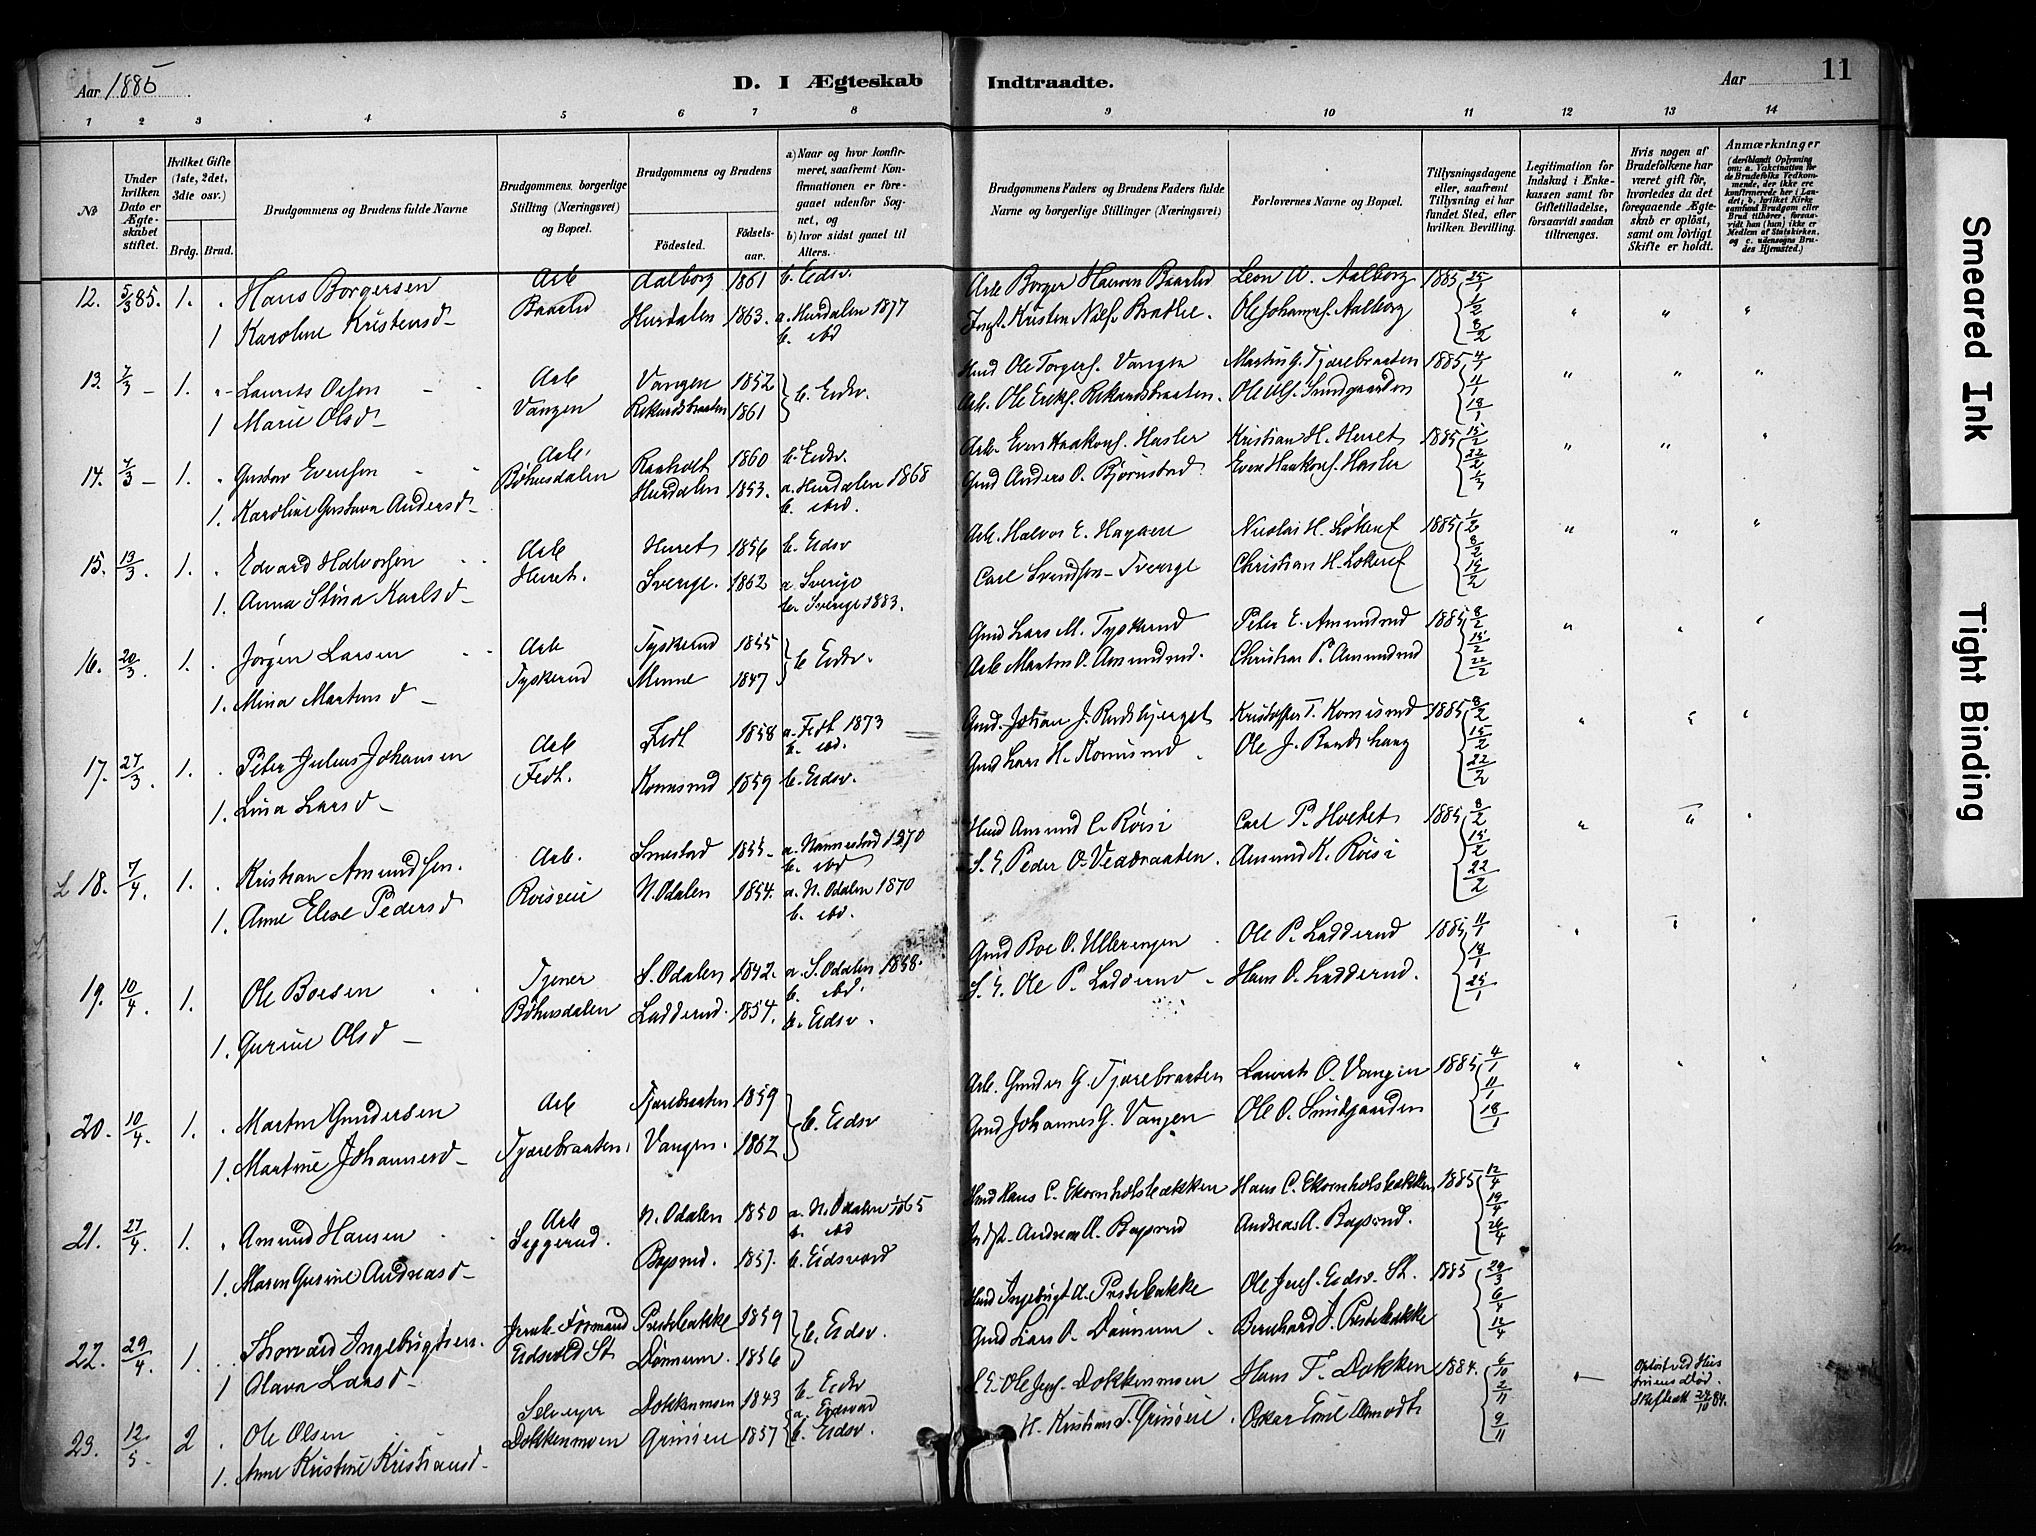 Aar 1885
D. I Ægteskab Indtraadte.
Aar
11
1 2 3 4 5 6 7 8 9 10 11 12 13 14
No
Under hvilken Dato er Ægteskabet stiftet.
Hvilket Gifte (1ste, 2det, 3die osv.)
Brdg. Brud.
Brudgommens og Brudens fulde Navne
Brudgommens borgerlige Stilling (Næringsvei) og Bopæl.
Brudgommens og Brudens
Fødested.
Fødselsaar.
a) Naar og hvor konfirmeret, saafremt Konfirmationen er foregaaet udenfor Sognet, og
b) hvor sidst gaaet til Alters.
Brudgommens Faders og Brudens Faders fulde Navne og borgerlige Stillinger (Næringsvei)
Forlovernes Navne og Bopæl.
Tillysningsdagene eller, saafremt Tillysning ei har fundet Sted, efter hvilken Bevilling.
Legitimation for Indskud i Enkekassen samt for Giftetilladelse, forsaavidt saadan tiltrænges.
Hvis nogen af Brudefolkene har været gift før, hvorledes da det foregaaende Ægteskab er opløst, samt om lovligt Skifte er holdt.
Anmærkninger
(deriblandt Oplysning om: a. Vakcination for de Brudefolks Vedkommende, der ikke ere konfirmerede her i Landet; b. hvilket Kirkesamfund Brudgom eller Brud tilhører, forsaavidt han (hun) ikke er Medlem af Statskirken, og c. udensogns Brudes Hjemsted.)
12. 5/3 85. 1. Hans Borgersen Arb Aalborg 1861 b. Eidsv. Arb Borger Baarlid Leon A. Aalborg 1885 25/1
1 Karoline Kristensd Baarlid Hurdalen 1863. a. Hurdalen 1877 Kristen Bratlie. Ole Johannes. Aalborg 1/2
b. ibd 8/2
13. 7/3 1. Laurits Olsen Arb Vangen 1852 b. Eidsv. Gmd Ole Torgers. Vangen Martin G. Tjærebraaten 1885 4/1
1 Marie Olsd Vangen 1861 Arb. Ole Eriks. Ole Ols. Sundgaarden 11/1
18/1
14. 7/3 1. Gustav Evensen Arb. Raaholt 1860 b. Eidsv. Arb. Even Haakons. Hasler Kristian H. Herret 1885 15/2
1. Karoline Gustava Andersd Bøhnsdalen Hurdalen 1853. a. Hurdalen 1868 Gmd Anders O. Bjørnstad Even Haakons. Hasler 22/2
b. ibid. 1/3
15. 13/3. 1. Edvard Halvorsen Arb Herret 1856 b. Eidsv Arb. Halvor E. Hagaen Nicolai H. 1885 1/2
1. Anna Stina Karlsd Herret. Sverige. 1862 a. Sverige Carl Svendsen Sverige Christian H. 8/2
b. Sverige 1883. 15/2
16. 20/3. 1. Jørgen Larsen Arb Tyskerud 1855 b Eidsv. Gmd Lars M. Tyskerud Peter E. Amundrud 1885 8/2
1. Mina Martensd Tyskerud Minne 1847 Arb Marten O. Amundrud. Christian P. Amundrud 15/2
22/2
17. 27/3. 1. Peter Julius Johansen Arb Fedt 1858 a. Fedt 1873 Gmd. Johan J. Rudsbjerget Kristoffer T. Komisrud 1885 8/2
b. ibd. 15/2
1. Lina Larsd Fedt. Komisrud 1859 b. Eidsv. Gmd Lars H. Komisrud Ole J. 22/2
18. 7/4. 1. Kristian Amundsen. Arb. Smestad 1855 a. Nannestad 1870 Amund C. Røisi Carl P. Hvebet 1885 8/2
b. ibd 15/2
1. Anne Elise Pedersd N. Odalen 1854. a. N. Odalen 1870 S. E. Peder O. Amund K. Røisi 22/2
b. ibd.
19. 10/4. 1. Ole Boesen Tjener S. Odalen 1842. a. S. Odalen 1858. Gmd Boe O. Ullerengen Ole P. Ladderud 1885 11/1
b. ibd. 18/1
1. Gurine Olsd Bøhnsdalen Ladderud. 1854. b. Eidsv. S. E. Ole P. Ladderud Hans O. Ladderud. 25/1
20. 10/4. 1. Martin Gundersen Arb Tjærebraaten 1859 b. Eidsv Arb. Gunder G. Tjærebraaten Laurits O. Vangen 1885 4/1
1. Martine Johannesd Tjærebraaten Vangen. 1862 Gmd Johannes G. Vangen Ole O. Sundgaarden 11/1
18/1
21. 27/4. 1. Amund Hansen Arb N. Odalen 1850 a. N. Odalen 1865 Hmd Hans C. Ekornholsbakken Hans C. Ekornholsbakken 1885 12/4
b. ibd 19/4
1. Maren Gurine Andreasd Seggerud. Bøgsrud. 1857. b. Eidsvold Andreas A. Bøgsrud Andreas A. Bøgsrud. 26/4
22. 29/4. 1. Thorvald Ingebrigtsen. Jernb. Formand Prestebakke 1859 b. Eidsv. Hmd Ingebrigt A. Prestebakke Ole Jens. Eidsv. St. 1885 29/3
1 Olava Larsd Eidsvold St Dønnum 1856 Gmd Lars O. Dønnum Bernhard J. Prestebakke 6/4
12/4
23. 12/5. 2 Ole Olsen Selveier Dokkenmoen 1843 b. Eidsv S. E. Ole Jens. Dokkenmoen Hans T. Dokken 1884. 6/10 Opløst ved Hustruens død. Skifteatt 24/10 84.
a. Eidsvold 2/11
1. Anne Kristine Kristiansd Dokkenmoen Grinien 1857 b. Eidsv. H. Kristian T. Oskar Emil 9/11
Smeared Ink
Tight Binding